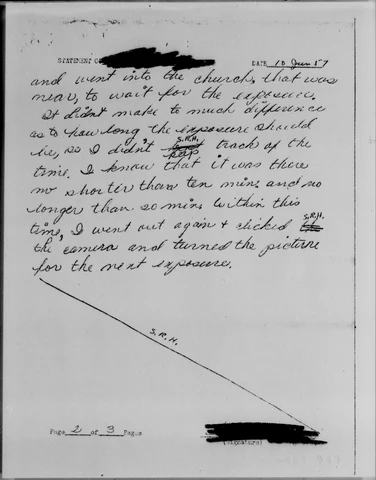 STATEMENT O
DATE 10 Jun 57
and went into the church, that was
near, to wait for the exposure.
It didnt make to much difference
as to how long the exposure should
S.R.H.
be, as I didn't kep track of the
time. I know that it was there
no shorter than ten min. and no
longer than 20 min. Within this
S.R.H.
time, I went out again & clicked
the camera and turned the picture
for the next exposure.
S.R.H.
Page 2 of 3 Pages
(Signature)